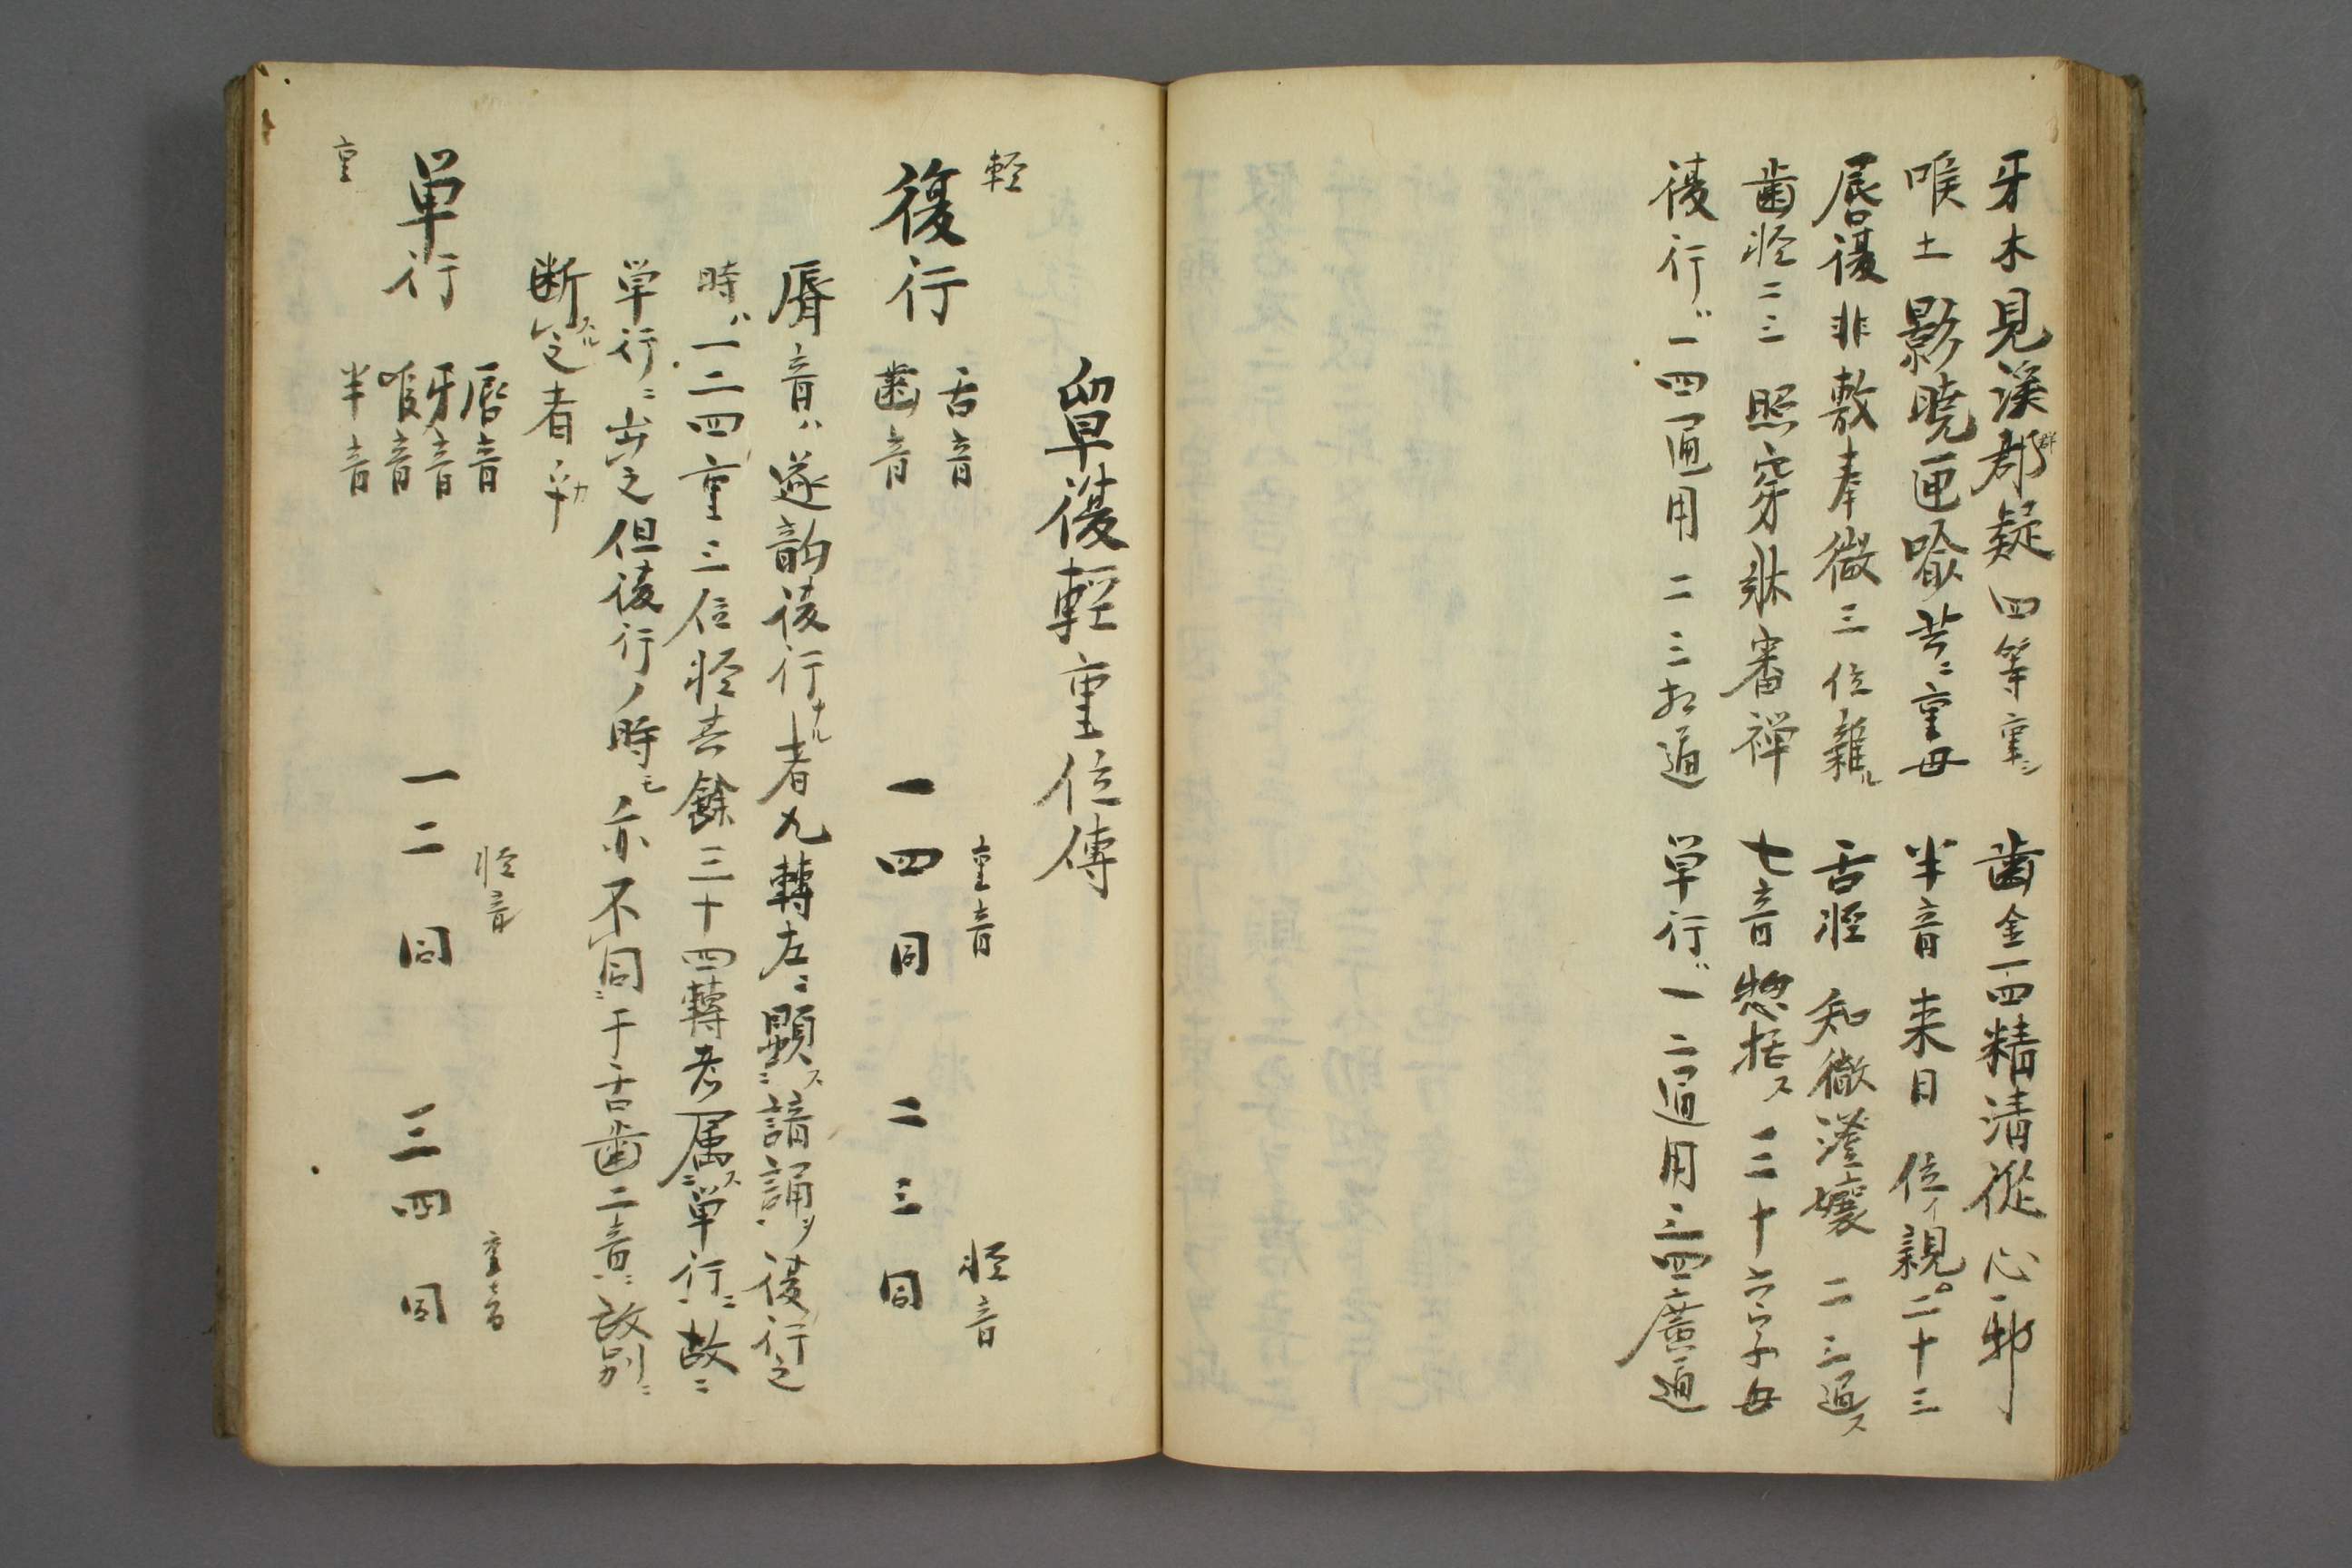 牙木見溪郡疑四等重シ　齒金一四精清從心邪
群
喉土影曉匣喩共ニ重母　半音来日位イ親二十三
唇復非敷奉微三位雑ル　舌軽知徹澄孃二三通ス
齒軽二三照穿牀審禅　七音惣括ス三十六字母
復行ハ一四通用二三相通　単行ハ一二通用三四廣通
単復輕重位傳
輕
復行　舌音　齒音　一四同　二三同
重音　軽音
唇音ハ遂韵復行ナル者九轉左ニ顕ス諳誦ソ復行之
時ハ一二四重三位軽去餘三十四轉者属ス単行ニ故ニ
単行ニ出之但復行ノ時モ亦不同于舌齒二音ニ故別ニ
断スル之者乎カ
単行　唇音　牙音　喉音　半音　一二同　三四同
軽音　重音
重